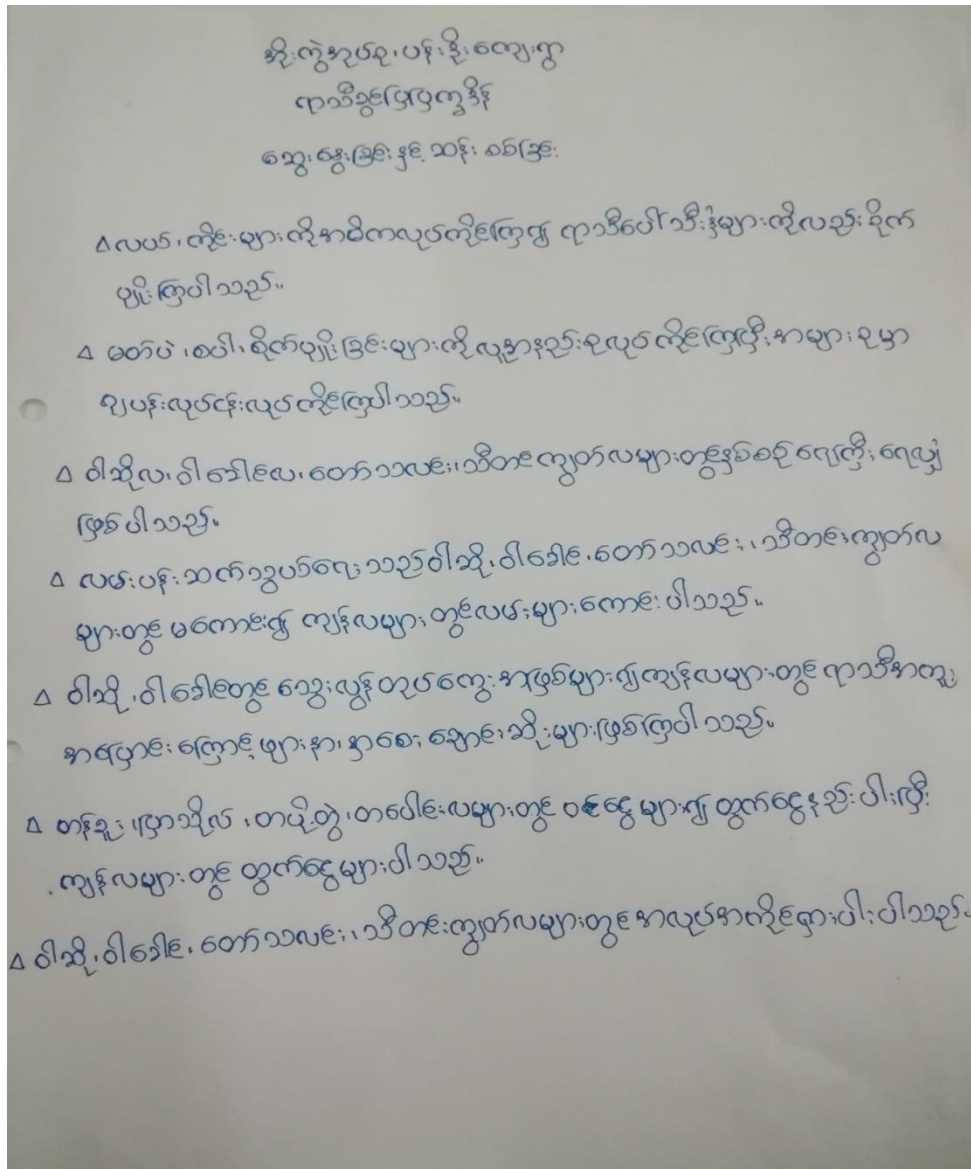 အိုးကွဲအုပ်စု၊ ပန်းနိုးကျေးရွာ
ရာသီခွင်ပြပြက္ခဒိန်
ဆွေးနွေးခြင်းနှင့် ဆန်းစစ်ခြင်း
∆ လယ်၊ ကိုင်းများကိုအဓိကလုပ်ကိုင်ကြ၍ ရာသီပေါ်သီးနှံများကိုလည်းစိုက်
ပျိုးကြပါသည်။
∆ မတ်ပဲ၊ စပါး စိုက်ပျိုးခြင်းများကိုလူအနည်းစုလုပ်ကိုင်ကြပြီးအများစုမှာ
ကျပန်းလုပ်ငန်းလုပ်ကိုင်ကြပါသည်။
∆ ဝါဆိုလ၊ ဝါခေါင်လ၊ တော်သလင်း၊ သီတင်းကျွတ်လများတွင်နှစ်စဉ် ရေကြီး ရေလျှံ
ဖြစ်ပါသည်။
∆ လမ်းပန်းဆက်သွယ်ရေးသည်ဝါဆို၊ ဝါခေါင်၊ တော်သလင်း၊ သီတင်းကျွတ်လ
များတွင် မကောင်း၍ ကျန်လများတွင်လမ်းများကောင်းပါသည်။
∆ ဝါဆို၊ ဝါခေါင်တွင် သွေးလွန်တုပ်ကွေးအဖြစ်များ၍ကျန်လများတွင် ရာသီအကူး
အပြောင်းကြောင့်ဖျားနာ၊ နှာစေး ချောင်းဆိုးများဖြစ်ကြပါသည်။
∆ တန်ခူး၊ ပြာသိုလ်၊ တပို့တွဲ၊ တပေါင်းလများတွင် ဝင်ငွေများ၍ ထွက်ငွေနည်းပါးပြီး
ကျန်လများတွင် ထွက်ငွေများပါသည်။
∆ ဝါဆို၊ ဝါခေါင်၊ တော်သလင်း၊ သီတင်းကျွတ်လများတွင်အလုပ်အကိုင်ရှားပါးပါသည်။